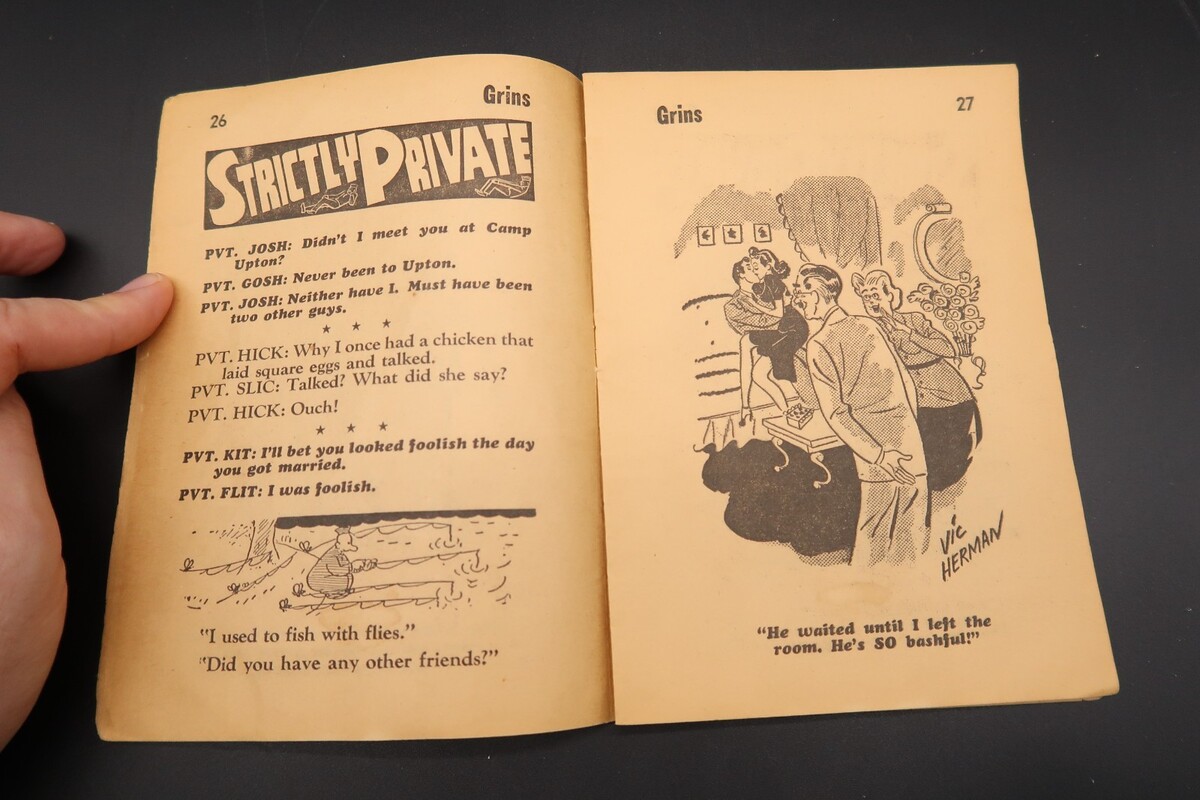 26
Grins
STRICTLY PRIVATE
PVT. JOSH: Didn't I meet you at Camp
Upton?
PVT. GOSH: Never been to Upton.
PVT. JOSH: Neither have I. Must have been
two other guys.
★ ★ ★
PVT. HICK: Why I once had a chicken that
laid square eggs and talked.
PVT. SLIC: Talked? What did she say?
PVT. HICK: Ouch!
★ ★ ★
PVT. KIT: I'll bet you looked foolish the day
you got married.
PVT. FLIT: I was foolish.
"I used to fish with flies."
"Did you have any other friends?"
Grins
27
VIC
HERMAN
"He waited until I left the
room. He's SO bashful!"